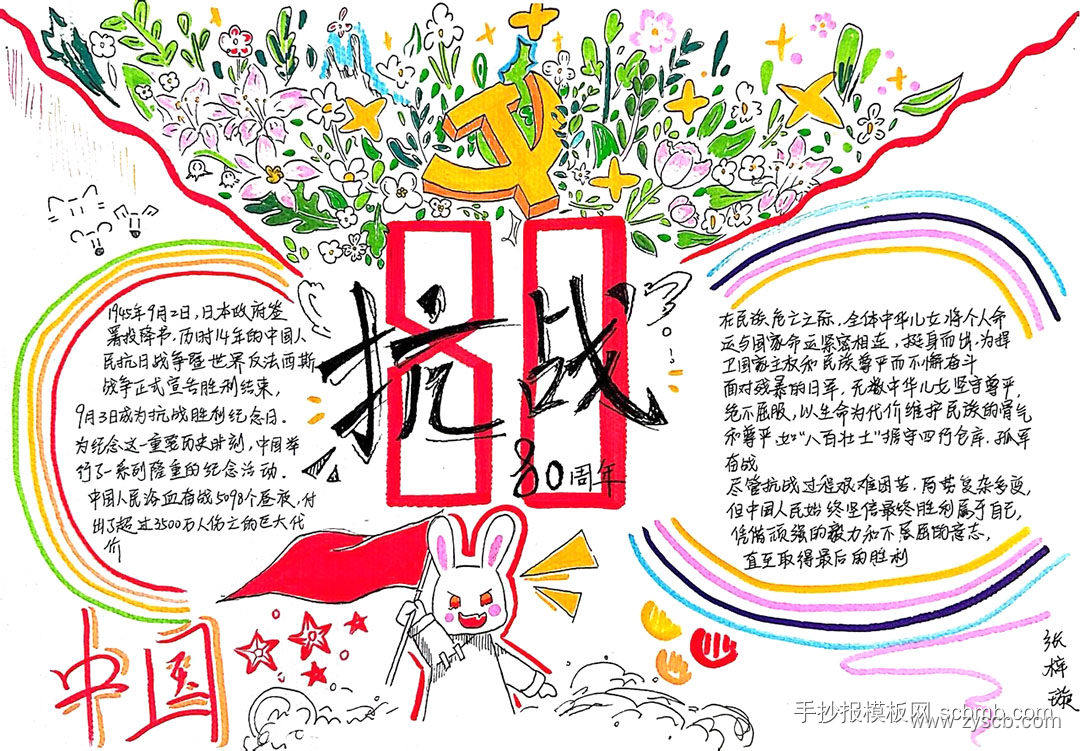 80
抗战
80周年
1945年9月2日,日本政府签
署投降书,历时14年的中国人
民抗日战争暨世界反法西斯
战争正式宣告胜利结束,
9月3日成为抗战胜利纪念日.
为纪念这一重要历史时刻,中国举
行了一系列隆重的纪念活动.
中国人民浴血奋战5098个昼夜,付
出了超过3500万人伤亡的巨大代
价
在民族危亡之际.全体中华儿女将个人命
运与国家命运紧密相连.挺身而出.为捍
卫国家主权和民族尊严而不懈奋斗
面对残暴的日军,无数中华儿女坚守尊严,
绝不屈服,以生命为代价维护民族的骨气
和尊严如"八百壮士"据守四行仓库.孤军
奋战
尽管抗战过程艰难困苦.局势复杂多变,
但中国人民始终坚信最终胜利属于自己,
凭借顽强的毅力和不屈的意志,
直至取得最后的胜利
中国
张梓璇
手抄报模板网 scbmb.com
www.zyscb.com